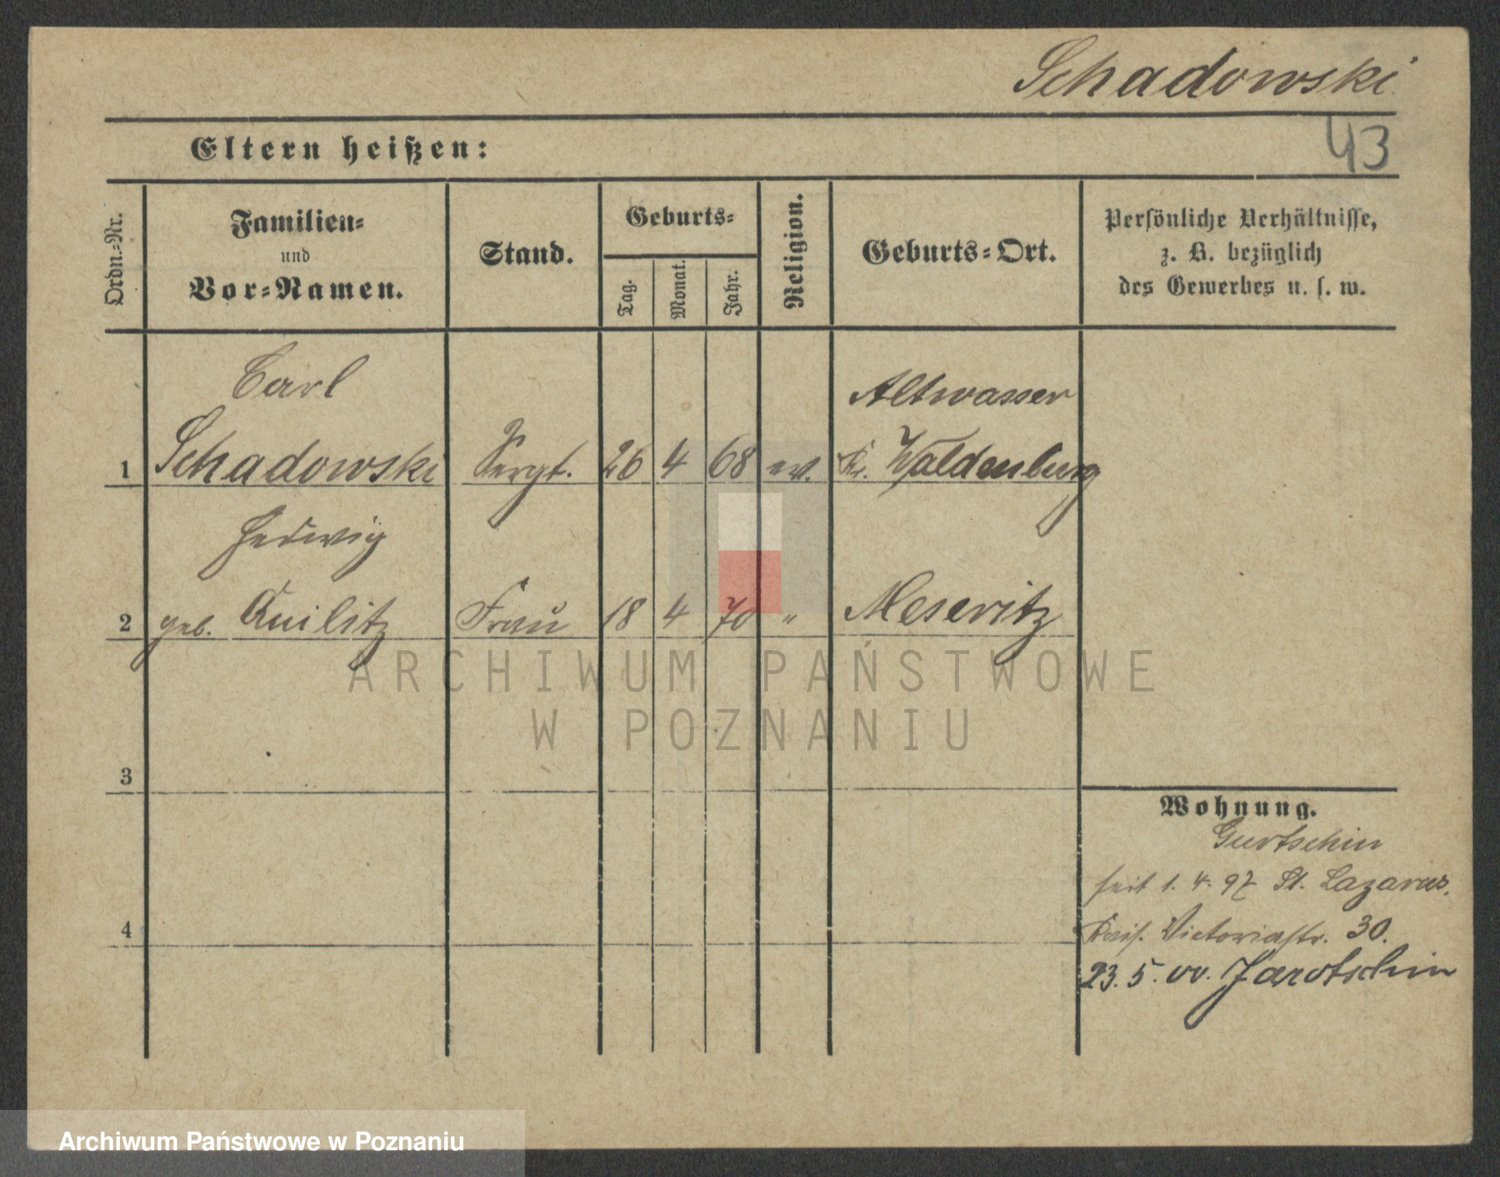 Schadowski
43
Eltern heißen:
Ordn.-Nr.
Familien-
und
Vor-Namen.
Stand.
Geburts-
Tag.
Monat.
Jahr.
Religion.
Geburts-Ort.
Persönliche Verhältnisse,
z. B. bezüglich
des Gewerbes u. s. w.
Carl
Altwasser
1 Schadowski Sergt. 26 4 68 ev. Kr. Waldenburg
Hedwig
2 geb. Quilitz Frau 18 4 70 " Meseritz
ARCHIWUM PAŃSTWOWE
W POZNANIU
3
Wohnung.
Gurtschin
seit 1. 4. 97 St. Lazarus.
4
Kais. Victoriastr. 30.
23. 5. 00. Jarotschin
Archiwum Państwowe w Poznaniu